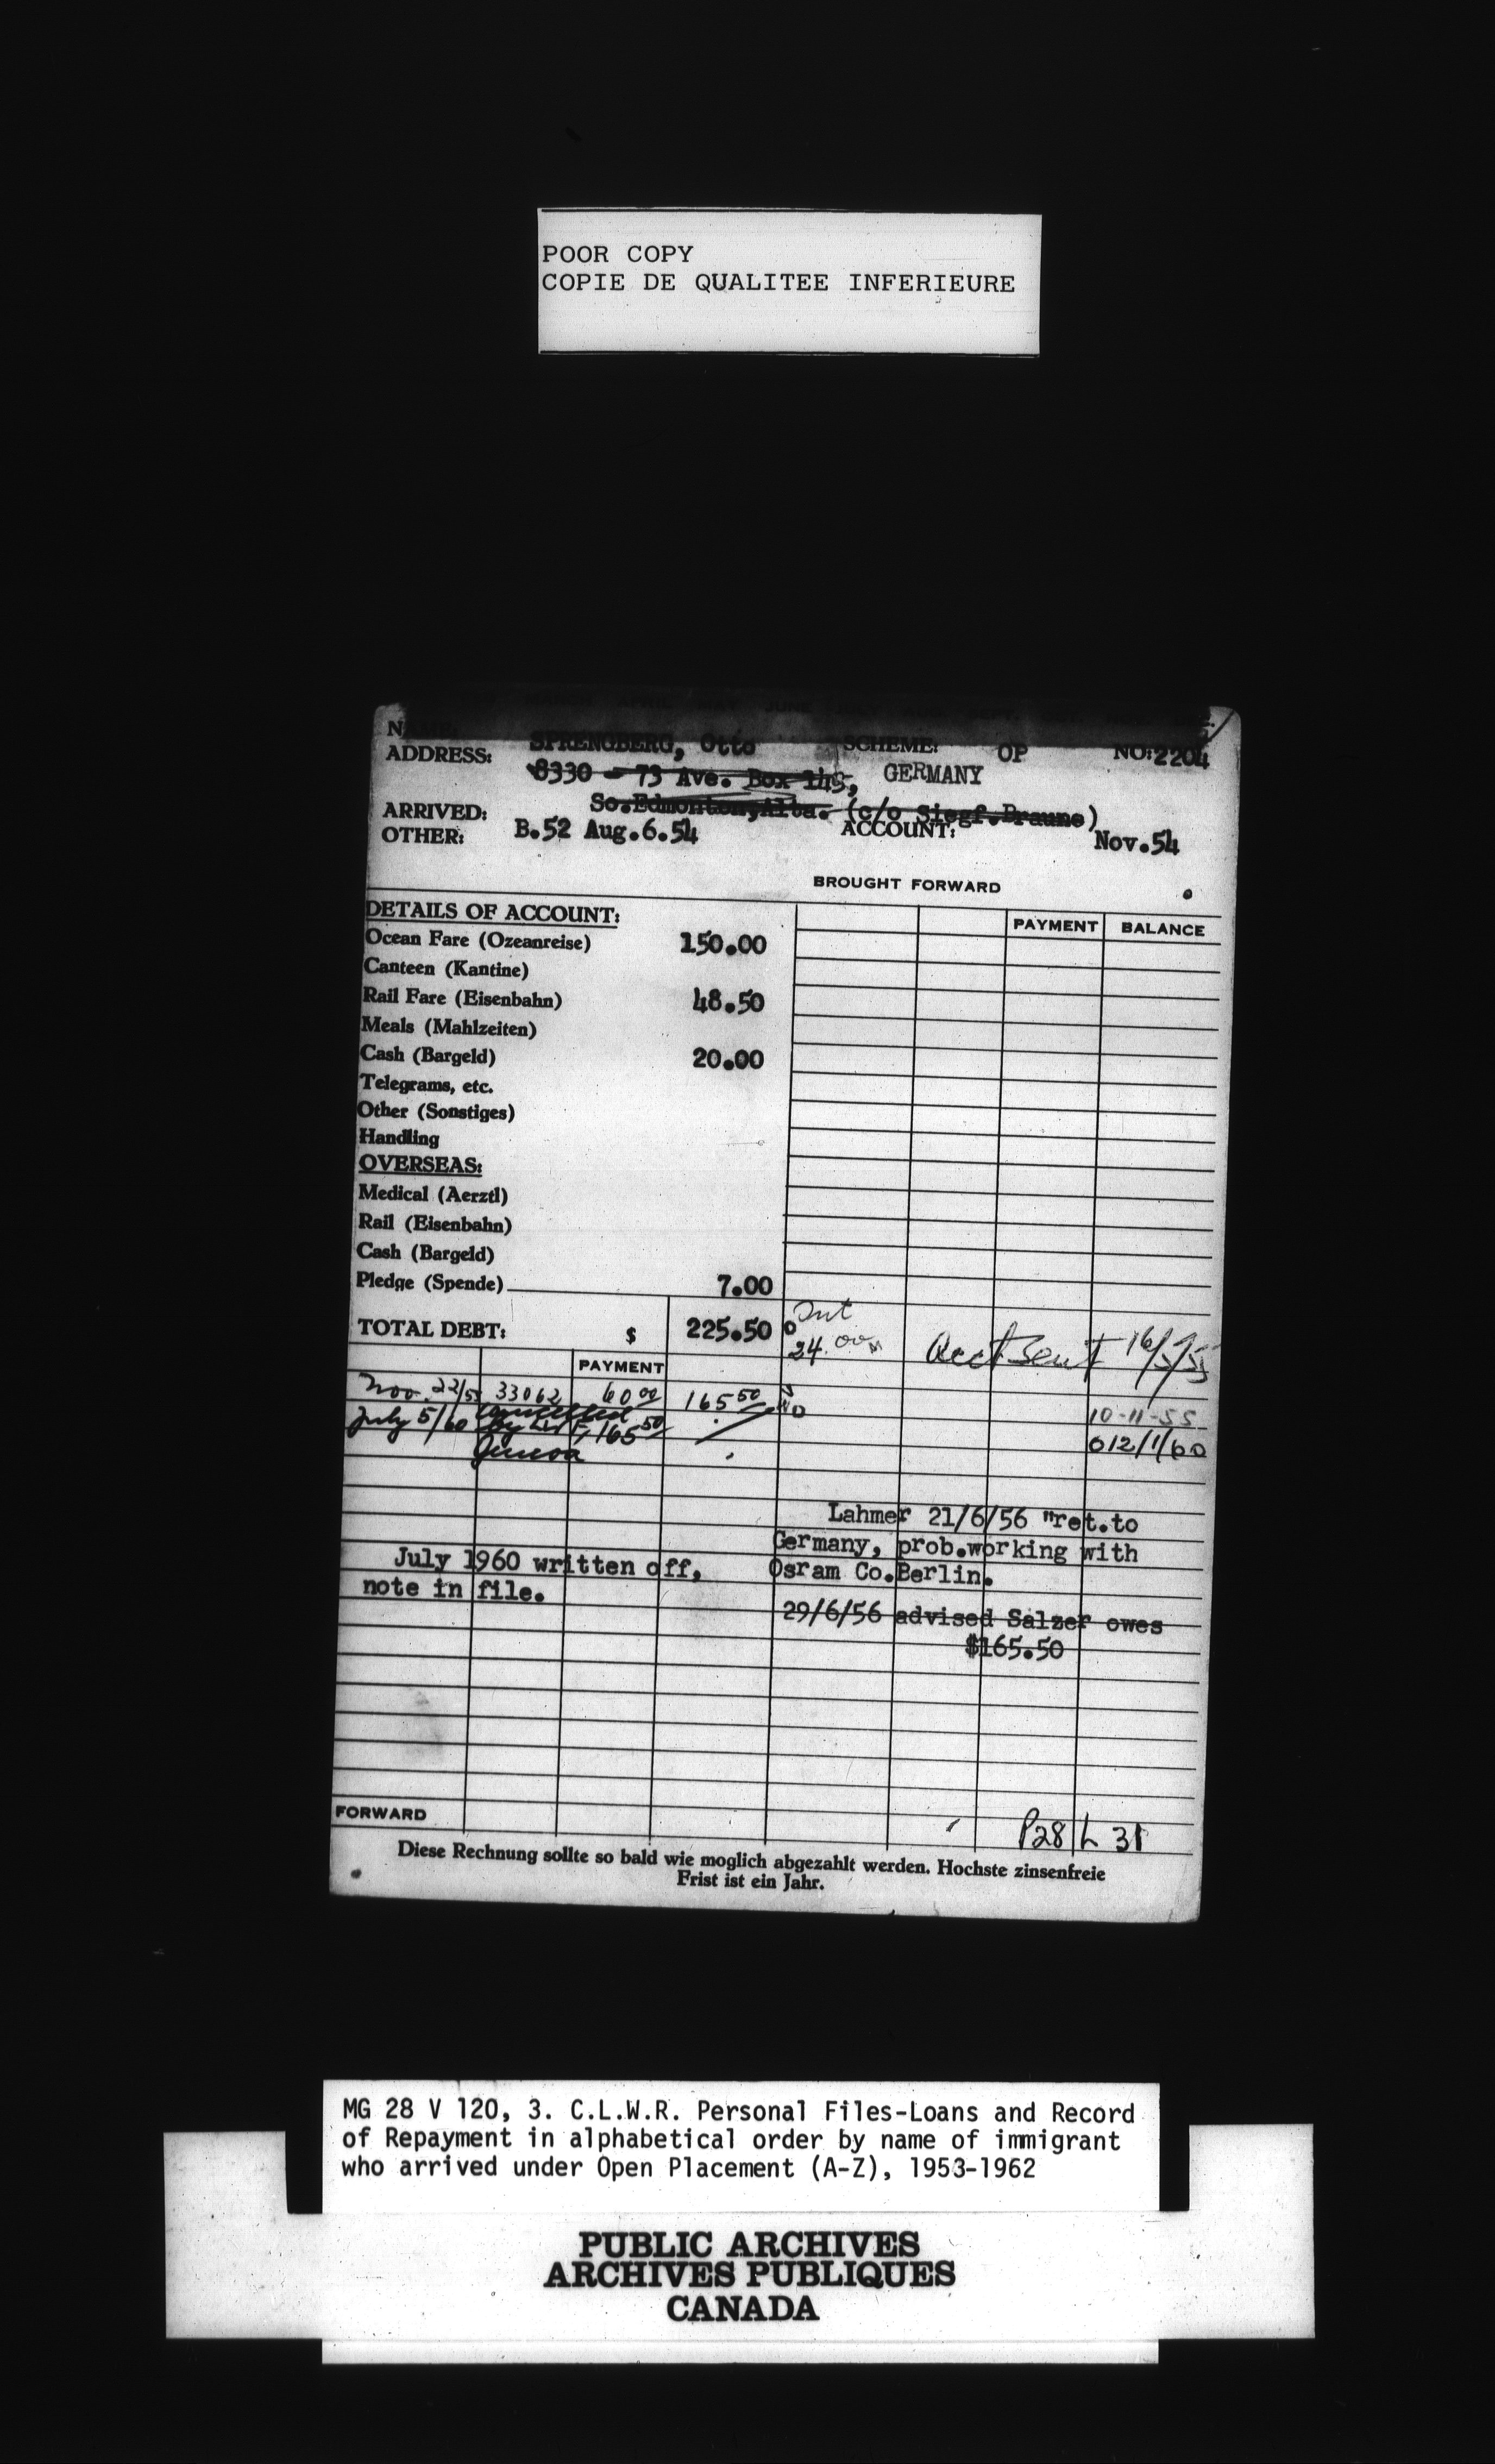 POOR COPY
COPIE DE QUALITEE INFERIEURE
SPRENGBERG, Otto SCHEME: OP NO:2204
ADDRESS: 8330 - 73 Ave. Box 145, GERMANY
So.Edmonton,Alta. (c/o Siegf.Braune)
ARRIVED: B.52 Aug.6.54 ACCOUNT: Nov.54
OTHER:
BROUGHT FORWARD
DETAILS OF ACCOUNT: PAYMENT BALANCE
Ocean Fare (Ozeanreise) 150.00
Canteen (Kantine)
Rail Fare (Eisenbahn) 48.50
Meals (Mahlzeiten)
Cash (Bargeld) 20.00
Telegrams, etc.
Other (Sonstiges)
Handling
OVERSEAS:
Medical (Aerztl)
Rail (Eisenbahn)
Cash (Bargeld)
Pledge (Spende) 7.00
TOTAL DEBT: $ 225.50
24.00 Acct Sent 16/5/55
PAYMENT
Nov. 22/55 33062 60 00 165 50
10-11-55
July 5/60 Cancelled by 165 50
Geneva
12/1/60
Lahmer 21/6/56 "ret.to
Germany, prob.working with
Osram Co.Berlin.
July 1960 written off,
note in file.
29/6/56 advised Salzer owes
$165.50
FORWARD
P28 L 31
Diese Rechnung sollte so bald wie moglich abgezahlt werden. Hochste zinsenfreie
Frist ist ein Jahr.
MG 28 V 120, 3. C.L.W.R. Personal Files-Loans and Record
of Repayment in alphabetical order by name of immigrant
who arrived under Open Placement (A-Z), 1953-1962
PUBLIC ARCHIVES
ARCHIVES PUBLIQUES
CANADA